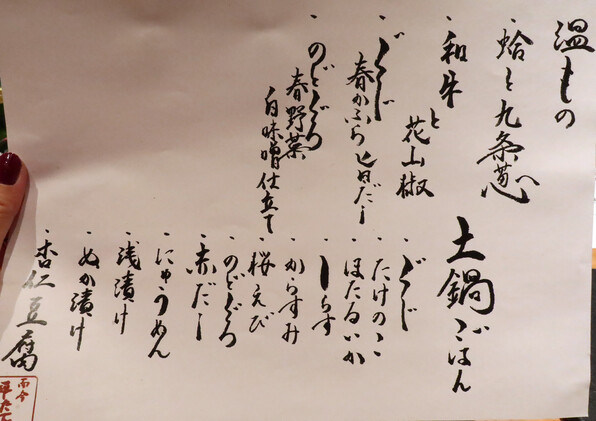 温もの
・蛤と九条葱
・和牛と花山椒
・ぐじ
春かぶら 白だし
・のどぐろ
春野菜
白味噌仕立て
土鍋ごはん
・ぐじ
・たけのこ
・ほたるいか
・しらす
・からすみ
・桜えび
・のどぐろ
・赤だし
・にゅうめん
・浅漬け
・ぬか漬け
・杏仁豆腐